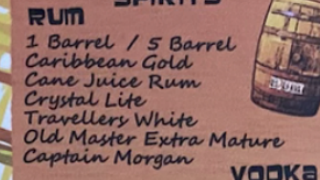 SPIRITS
RUM
1 Barrel / 5 Barrel
Caribbean Gold
Cane Juice Rum
Crystal Lite
Travellers White
Old Master Extra Mature
Captain Morgan
VODKA